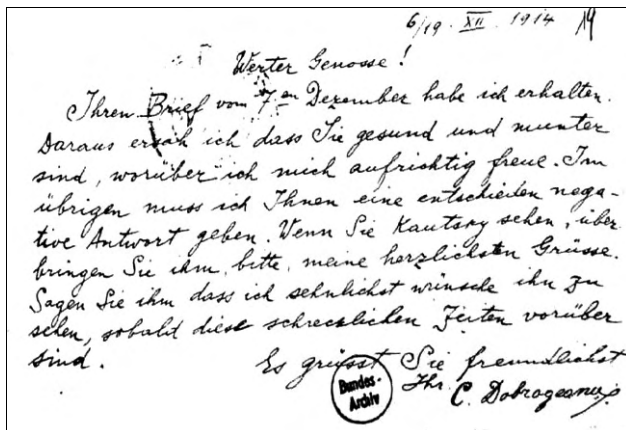 6/19. XII. 1914 19
Werter Genosse!
Ihren Brief vom 7en Dezember habe ich erhalten.
Daraus ersah ich dass Sie gesund und munter
sind, worüber ich mich aufrichtig freue. Im
übrigen muss ich Ihnen eine entschieden nega-
tive Antwort geben. Wenn Sie Kautsky sehen, über
bringen Sie ihm, bitte, meine herzlichsten Grüsse.
Sagen Sie ihm dass ich sehnlichst wünsche ihn zu
sehen, sobald diese schrecklichen Zeiten vorüber
sind.
Es grüsst Sie freundlichst
Ihr. C. Dobrogeanu
Bundes-
Archiv